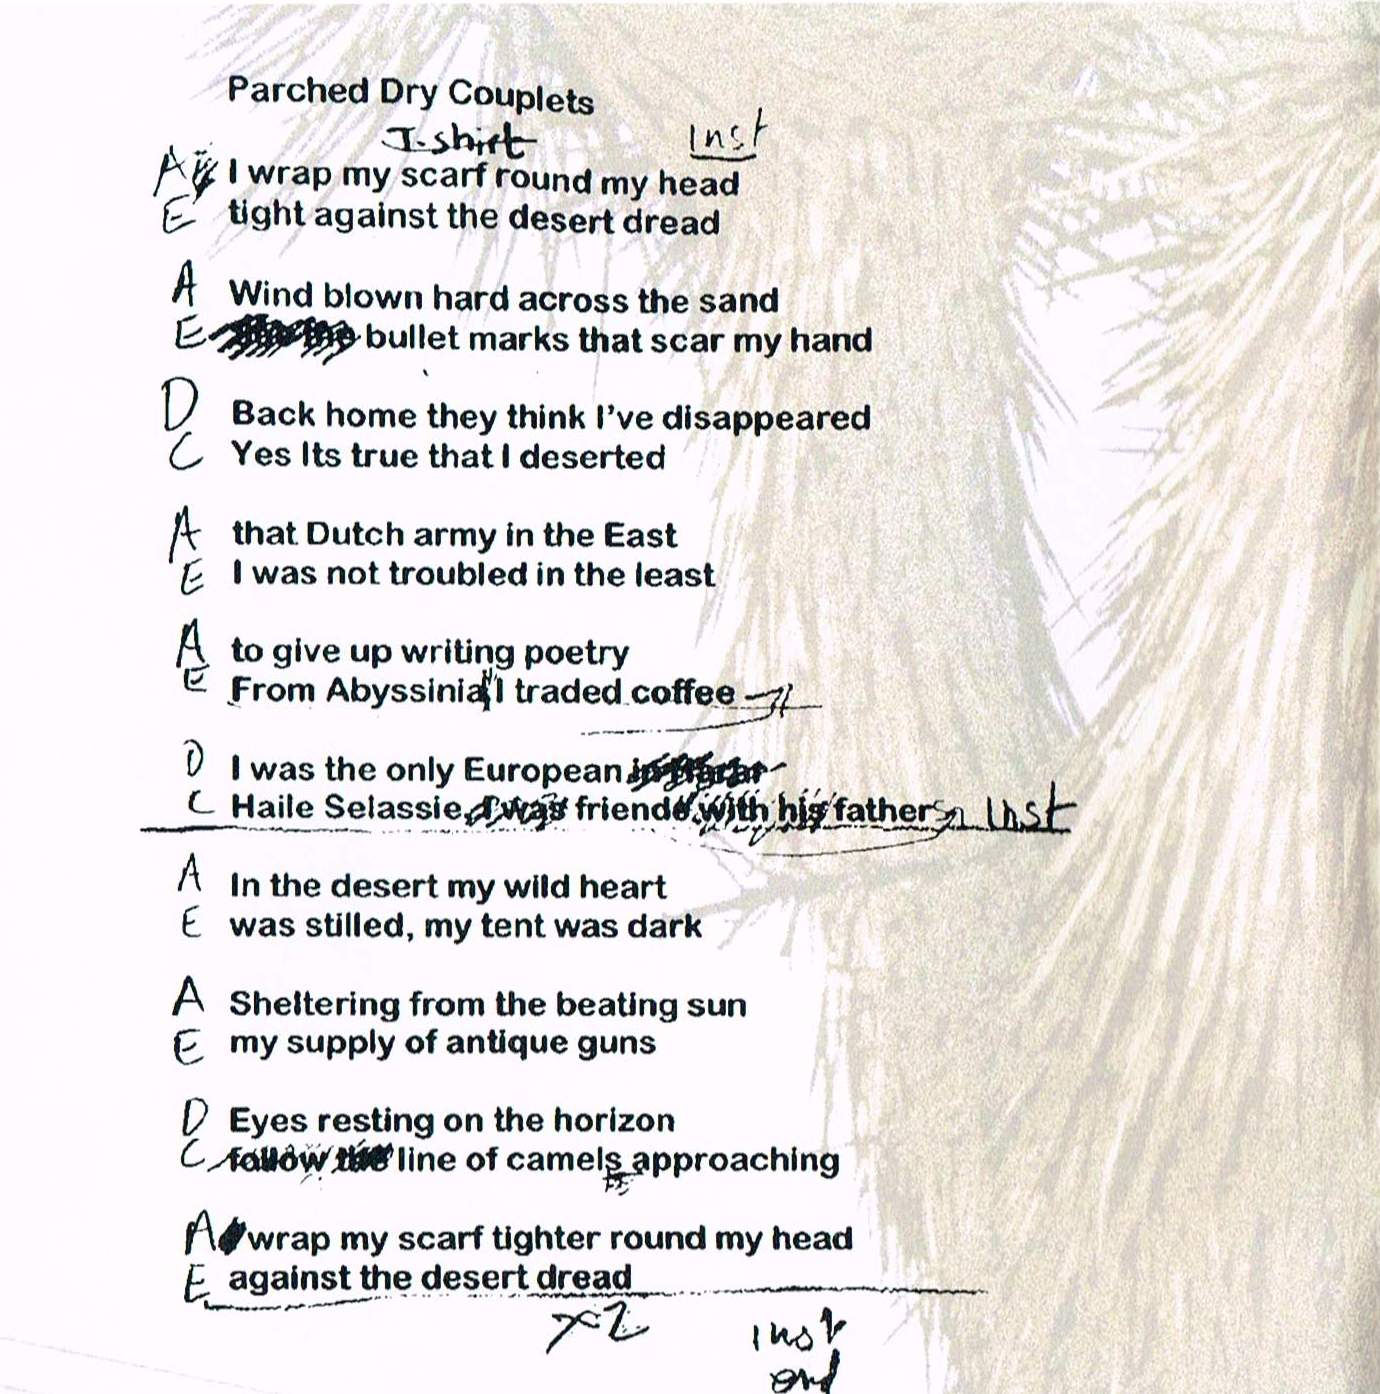 Parched Dry Couplets
T-shirt Inst
A I wrap my scarf round my head
E tight against the desert dread
A Wind blown hard across the sand
E bullet marks that scar my hand
D Back home they think I've disappeared
C Yes Its true that I deserted
A that Dutch army in the East
E I was not troubled in the least
A to give up writing poetry
E From Abyssinia I traded coffee
D I was the only European
C Haile Selassie, I was friends with his father Inst
A In the desert my wild heart
E was stilled, my tent was dark
A Sheltering from the beating sun
E my supply of antique guns
D Eyes resting on the horizon
C follow the line of camels approaching
A wrap my scarf tighter round my head
E against the desert dread
x2 Inst
end